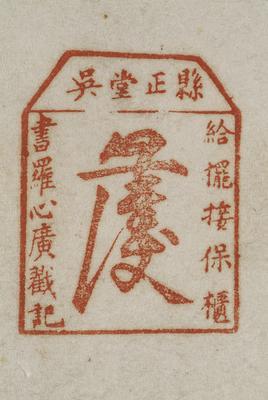 縣正堂吳
給擺接保櫃
書羅心廣戳記